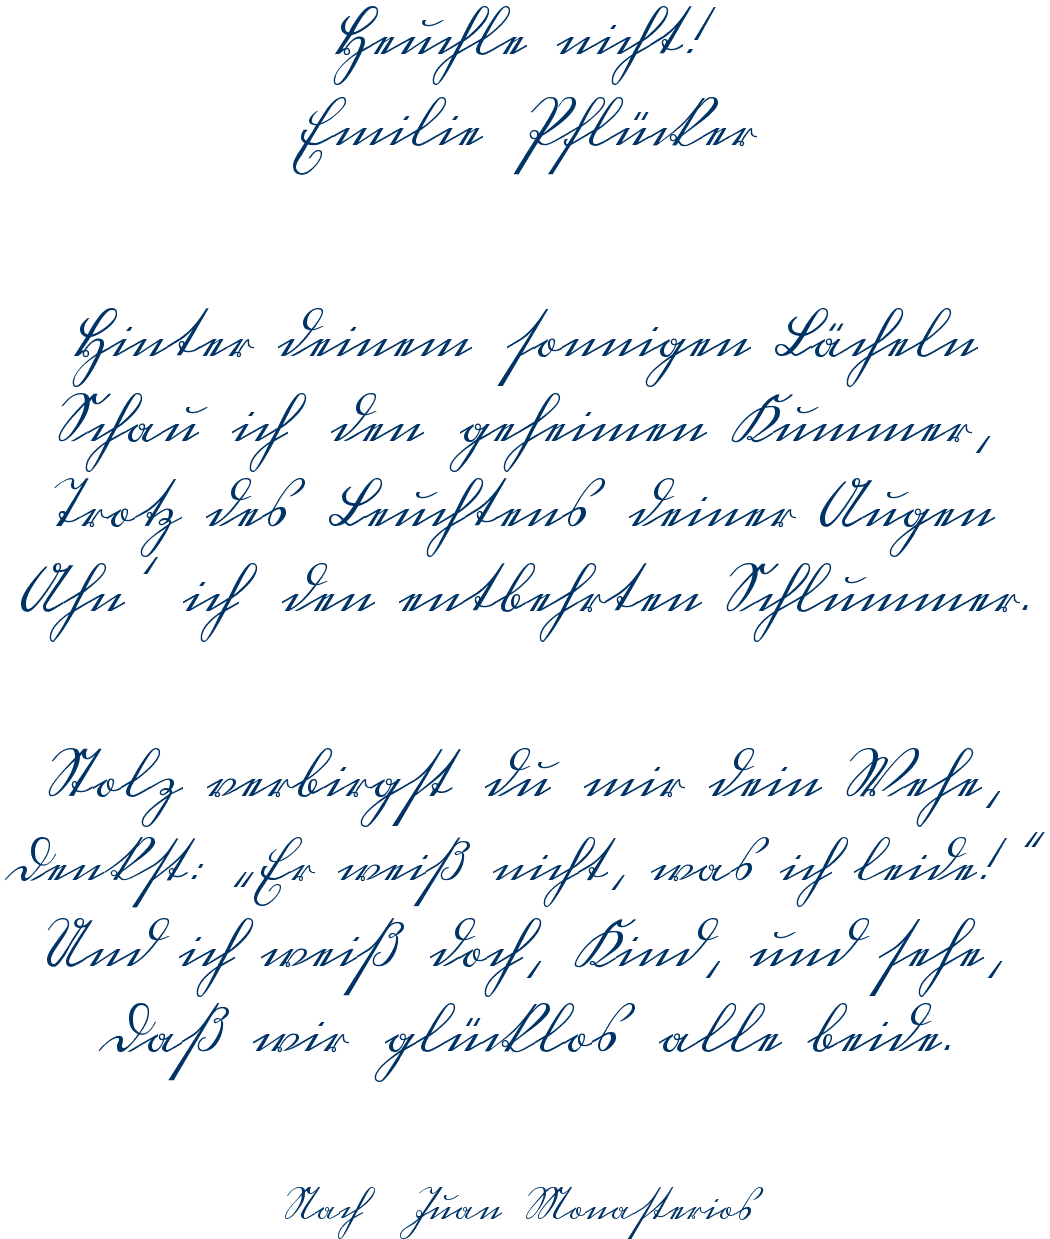 Heuchle nicht!
Emilie Pflücker
Hinter deinem sonnigen Lächeln
Schau ich den geheimen Kummer,
Trotz des Leuchtens deiner Augen
Ahn' ich den entbehrten Schlummer.
Stolz verbirgst du mir dein Wehe,
Denkst: „Er weiß nicht, was ich leide!"
Und ich weiß doch, Kind, und sehe,
Daß wir glücklos alle beide.
Nach Juan Monasterios